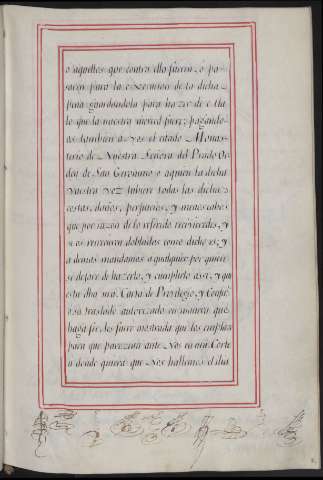 o aquellos que contra ello fueren, ò pa-
saren para la execucion de la dicha
pena guardandola para hazer de ella
lo que la nuestra merced fuere; pagando-
os tambien a vos el citado Monas-
terio de Nuestra Señora del Prado Or-
den de San Geronimo o aquien la dicha
vuestra voz tubiere todas las dichas
costas, daños, perjuicios, y menoscabos
que por razon de lo referido recivieredes, y
se os recrecieren doblados como dicho es; y
a demas mandamos a qualquier por quien
se dejare de hazerlo, y cumplirlo assi, y que
esta dha nrâ Carta de Privilegio, y Confir
o su traslado autorizado en manera que
haga fee les fuere mostrada que los emplaze
para que parezcan ante Nos en nrâ Corte
a donde quiera que Nos hallemos el dia